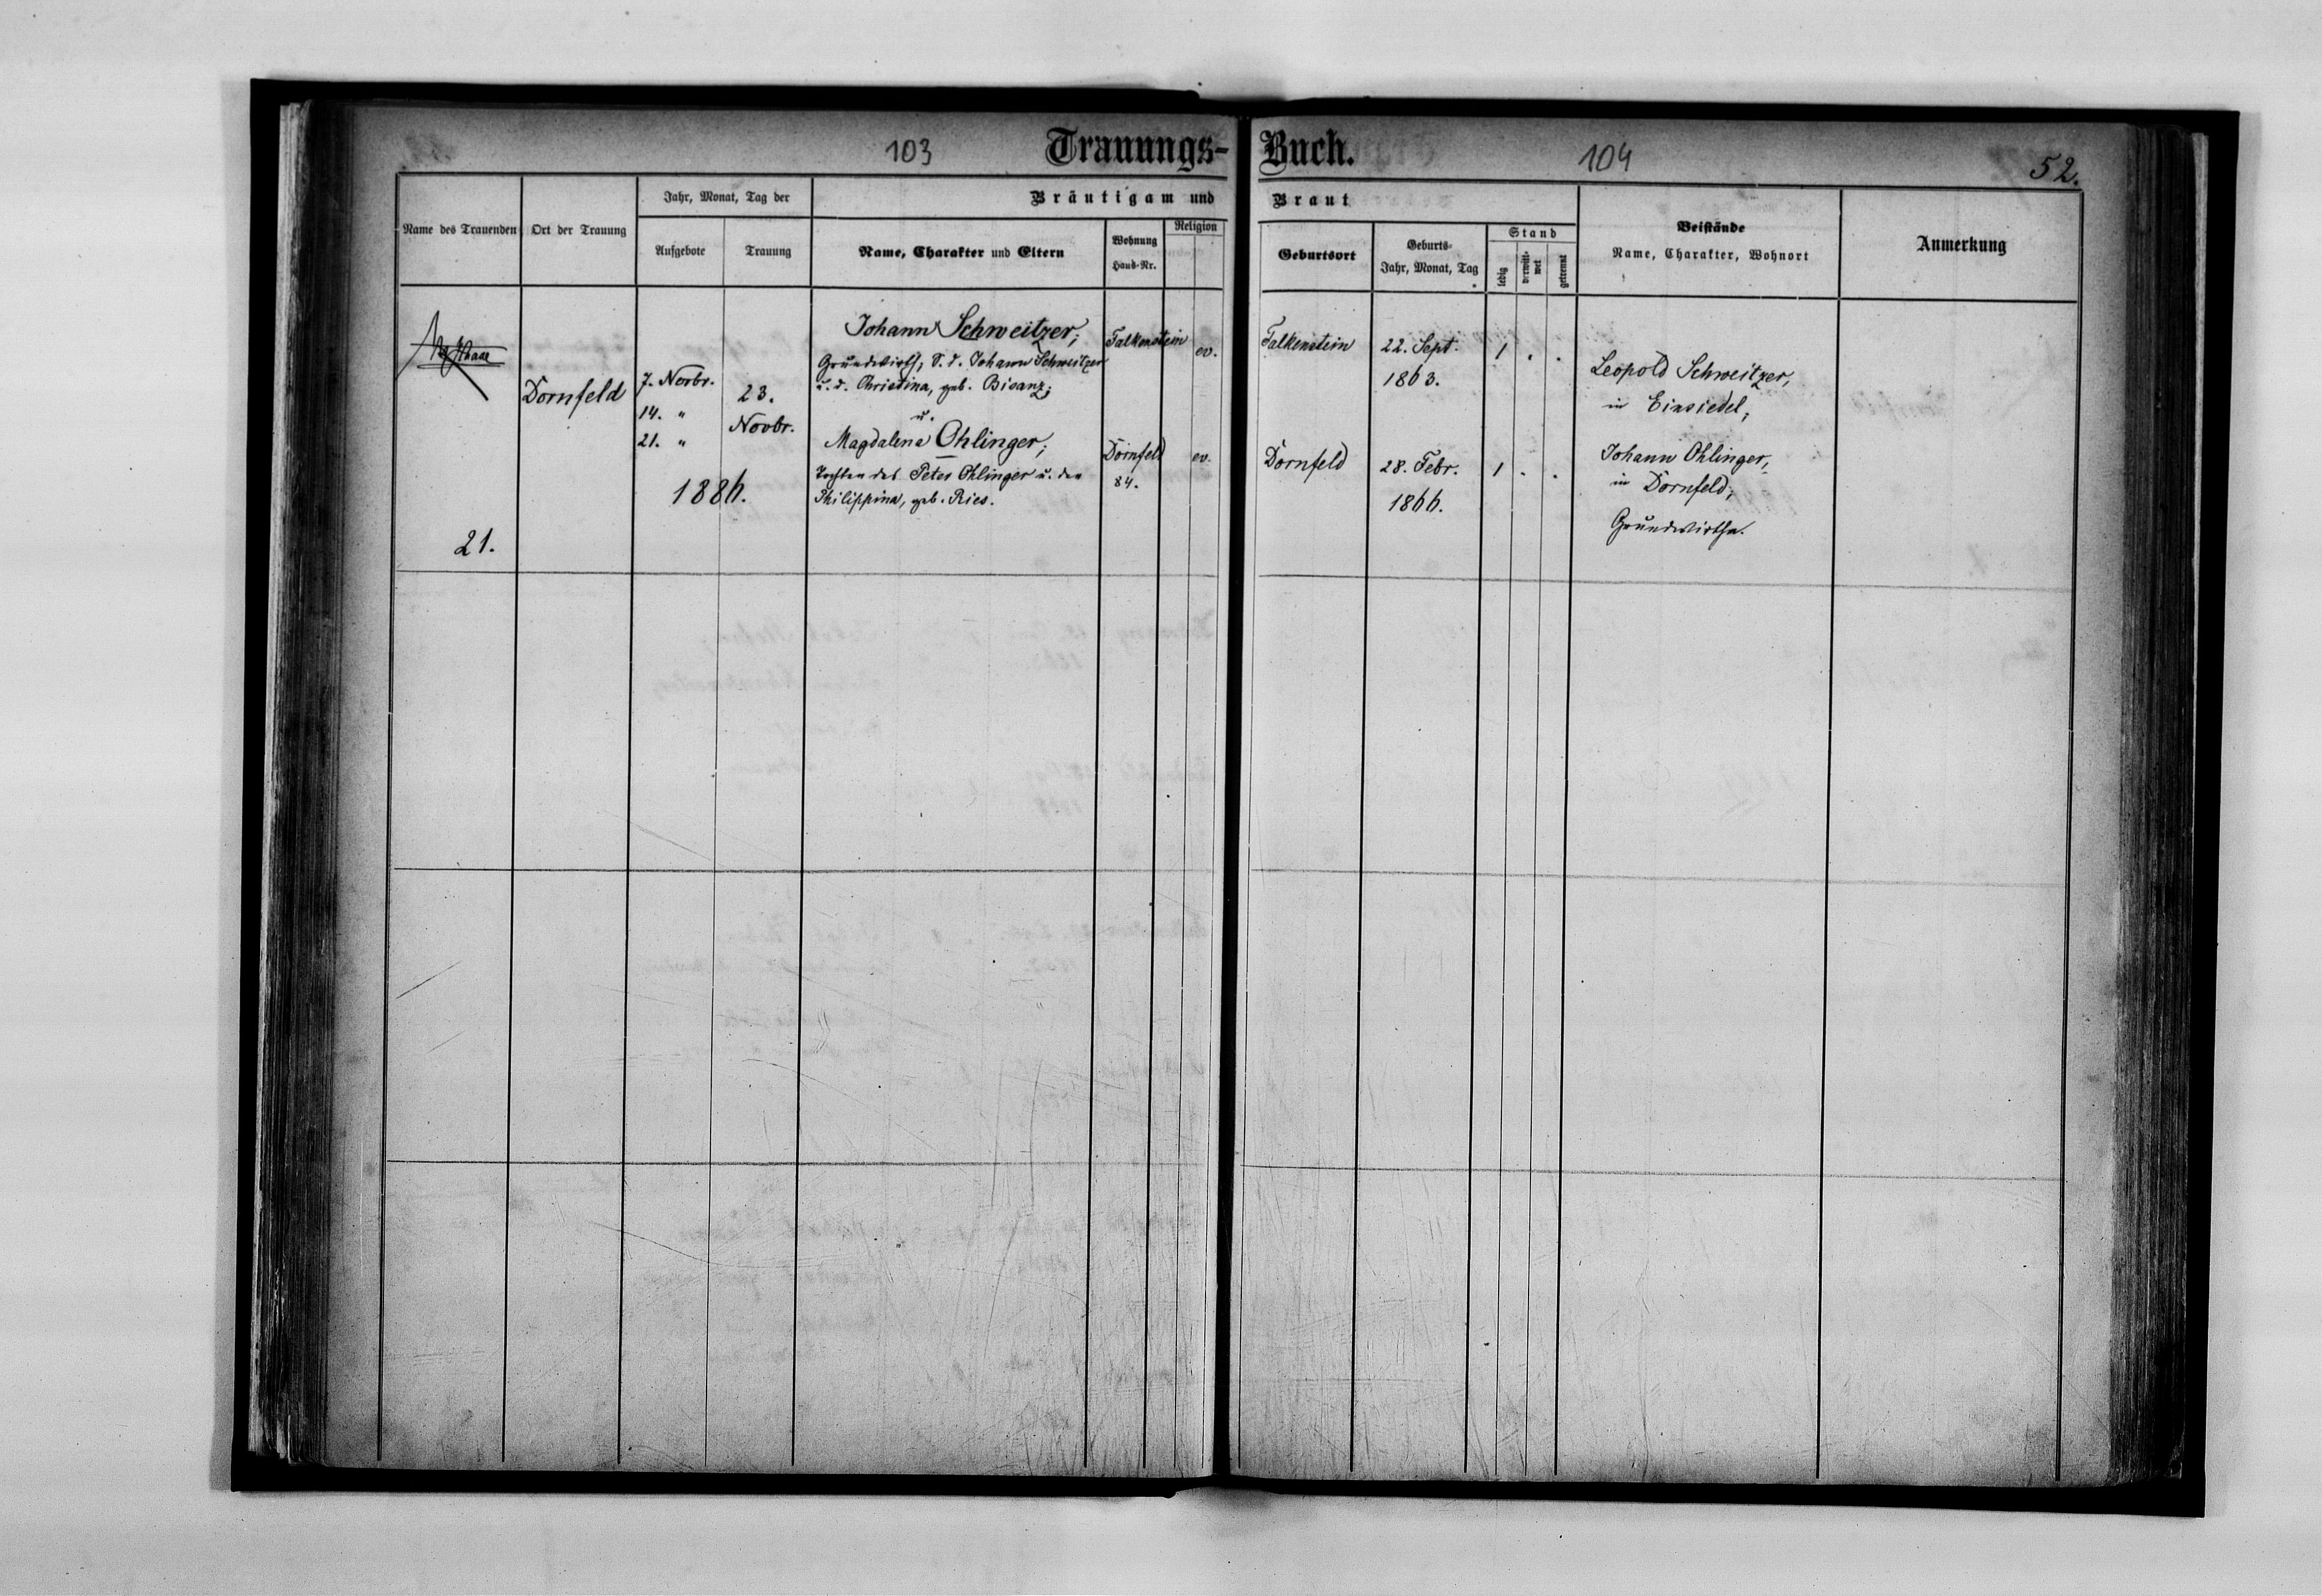 103
Trauungs-Buch.
104
52.
Name des Trauenden
Ort der Trauung
Jahr, Monat, Tag der
Aufgebote
Trauung
Bräutigam und Braut
Name, Charakter und Eltern
Wohnung
Haus-Nr.
Religion
Geburtsort
Geburts-
Jahr, Monat, Tag
Stand
ledig
verwitt-
wet
getrennt
Beistände
Name, Charakter, Wohnort
Anmerkung
21.
Dornfeld
7. Novbr.
14. "
21. "
23.
Novbr.
1886.
Johann Schweitzer;
Grundwirth, S. d. Johann Schweitzer
u. d. Christina, geb. Bisanz;
u.
Magdalena Ohlinger;
Tochter des Peter Ohlinger u. der
Philippina, geb. Ries.
Falkenstein
ev.
Dornfeld
84.
ev.
Falkenstein
22. Sept.
1863.
1 . .
Dornfeld
28. Febr.
1866.
1 . .
Leopold Schweitzer,
in Einsiedel;
Johann Ohlinger,
in Dornfeld;
Grundwirthe.